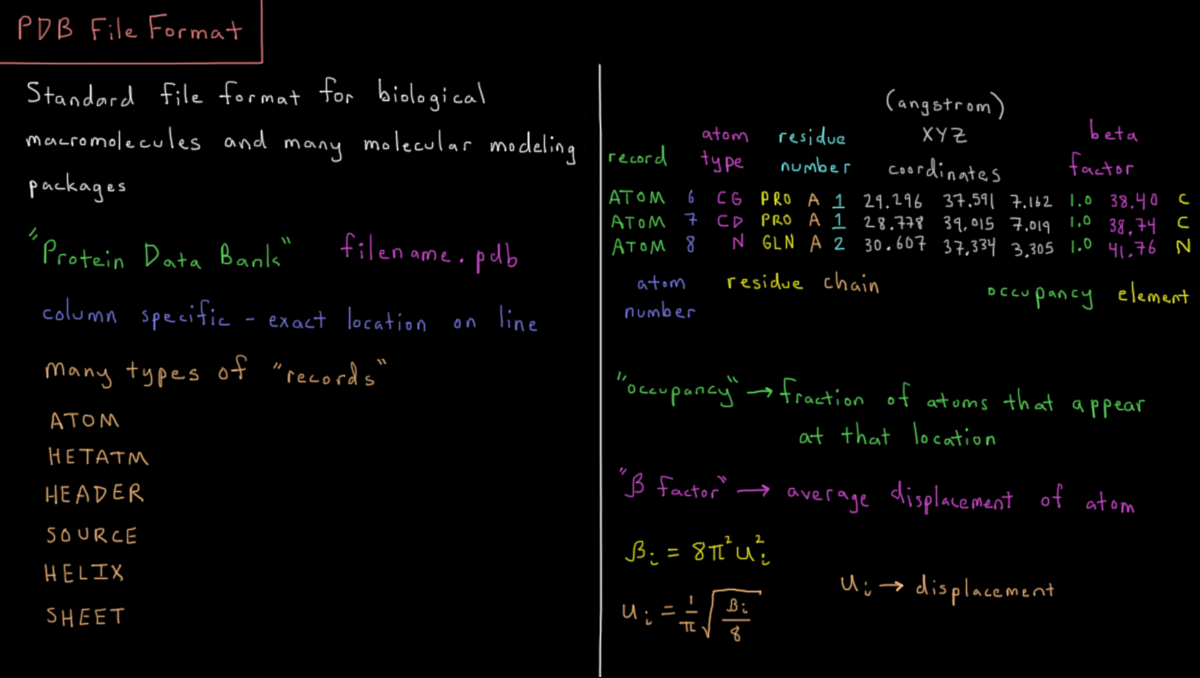 PDB File Format
Standard file format for biological
macromolecules and many molecular modeling
packages
"Protein Data Bank" filename.pdb
column specific - exact location on line
many types of "records"
ATOM
HETATM
HEADER
SOURCE
HELIX
SHEET
(angstrom)
atom residue XYZ beta
record type number coordinates factor
ATOM 6 CG PRO A 1 29.296 37.591 7.162 1.0 38.40 C
ATOM 7 CD PRO A 1 28.778 39.015 7.019 1.0 38.74 C
ATOM 8 N GLN A 2 30.607 37.334 3.305 1.0 41.76 N
atom residue chain occupancy element
number
"occupancy" → fraction of atoms that appear
at that location
"β factor" → average displacement of atom
βᵢ = 8π²uᵢ²
uᵢ → displacement
uᵢ = 1/π √(βᵢ/8)